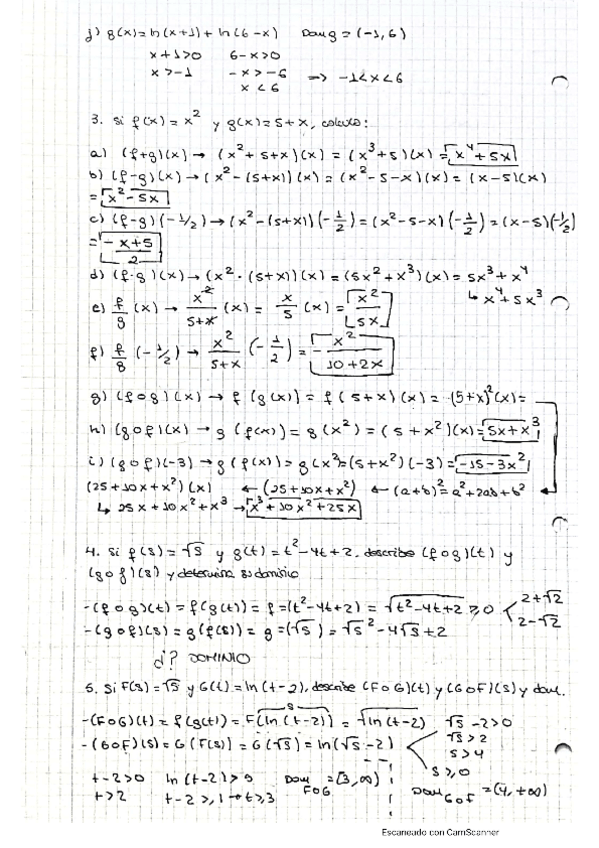 j) g(x) = ln(x+1) + ln(6-x) Dom g = (-1,6)
x+1>0 6-x>0
x>-1 -x>-6 => -1<x<6
x<6
3. Si f(x) = x² y g(x) = 5+x, calcula:
a) (f+g)(x) → (x²+5+x)(x) = (x³+5)(x) = x⁴+5x
b) (f-g)(x) → (x²-(5+x))(x) = (x²-5-x)(x) = (x-5)(x)
= x²-5x
c) (f-g)(-1/2) → (x²-(5+x))(-1/2) = (x²-5-x)(-1/2) = (x-5)(-1/2)
= -x+5/2
d) (f·g)(x) → (x²·(5+x))(x) = (5x²+x³)(x) = 5x³+x⁴
↳ x⁴+5x³
e) f/g (x) → x²/5+x (x) = x/5 (x) = x²/5x
f) f/g (-1/2) → x²/5+x (-1/2) = - x²/10+2x
g) (f∘g)(x) → f(g(x)) = f(5+x)(x) = (5+x)²(x) =
h) (g∘f)(x) → g(f(x)) = g(x²) = (5+x²)(x) = 5x+x³
i) (g∘f)(-3) → g(f(x)) = g(x²) = (5+x²)(-3) = -15-3x²
(25+10x+x²)(x) ← (25+10x+x²) ← (a+b)² = a²+2ab+b²
↳ 25x+10x²+x³ → x³+10x²+25x
4. Si f(s) = √s y g(t) = t²-4t+2, describe (f∘g)(t) y
(g∘f)(s) y determina su dominio
-(f∘g)(t) = f(g(t)) = f=(t²-4t+2) = √t²-4t+2 ≥0 < 2+√2
2-√2
-(g∘f)(s) = g(f(s)) = g=(√s) = √s²-4√s+2
d? DOMINIO
5. Si F(s) = √s y G(t) = ln(t-2), describe (F∘G)(t) y (G∘F)(s) y dom.
s
-(F∘G)(t) = f(g(t)) = F(ln(t-2)) = √ln(t-2) √s-2>0
√s>2
-(G∘F)(s) = G(F(s)) = G(√s) = ln(√s-2) < s>4
s≥0
t-2>0 ln(t-2)≥0 Dom F∘G = [3,∞) Dom G∘F = (4,+∞)
t>2 t-2≥1 → t≥3
Escaneado con CamScanner